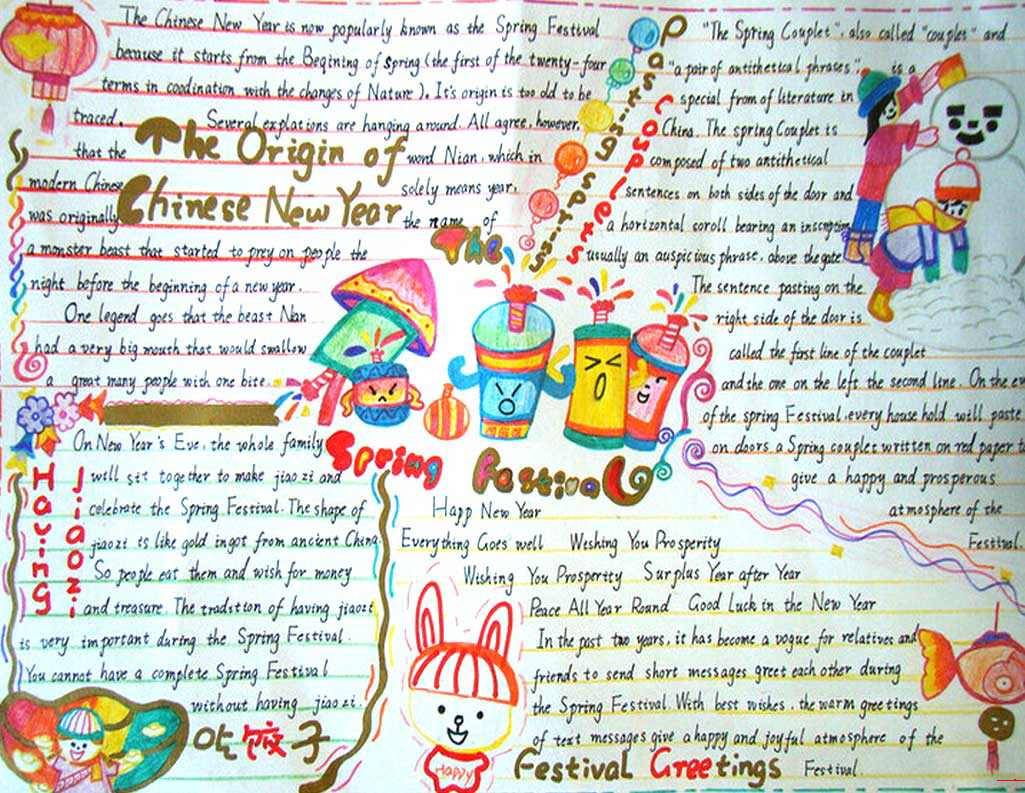 The Origin of
Chinese New Year
The Chinese New Year is now popularly known as the Spring Festival
because it starts from the Begining of Spring (the first of the twenty-four
terms in coodination with the changes of Nature). It's origin is too old to be
traced. Several explations are hanging around. All agree, however,
that the word Nian, which in
modern Chinese solely means year,
was originally the name of
a monster beast that started to prey on people the
night before the beginning of a new year.
One legend goes that the beast Nian
had a very big mouth that would swallow
a great many people with one bite.
Pasting Spring
Couplets
"The Spring Couplet", also called "couplet" and
"a pair of antithetical phrases", is a
special from of literature in
China. The spring Couplet is
composed of two antithetical
sentences on both sides of the door and
a horizontal scroll bearing an inscription
usually an auspicious phrase, above the gate.
The sentence pasting on the
right side of the door is
called the first line of the couplet
and the one on the left the second line. On the eve
of the spring Festival, every house hold will paste
on doors a Spring couplet written on red paper t
give a happy and prosperous
atmosphere of the
Festival.
The
Spring Festival
Having
Jiaozi
On New Year's Eve, the whole family
will sit together to make jiao zi and
celebrate the Spring Festival. The shape of
jiaozi is like gold ingot from ancient China.
So people eat them and wish for money
and treasure. The tradition of having jiaozi
is very important during the Spring Festival.
You cannot have a complete Spring Festival
without having jiao zi.
吃饺子
Happ New Year
Everything Goes well Wishing You Prosperity
Wishing You Prosperity Surplus Year after Year
Peace All Year Round Good Luck in the New Year
In the past two years, it has become a vogue for relatives and
friends to send short messages greet each other during
the Spring Festival. With best wishes, the warm greetings
of text messages give a happy and joyful atmosphere of the
Festival Greetings Festival.
HAPPY